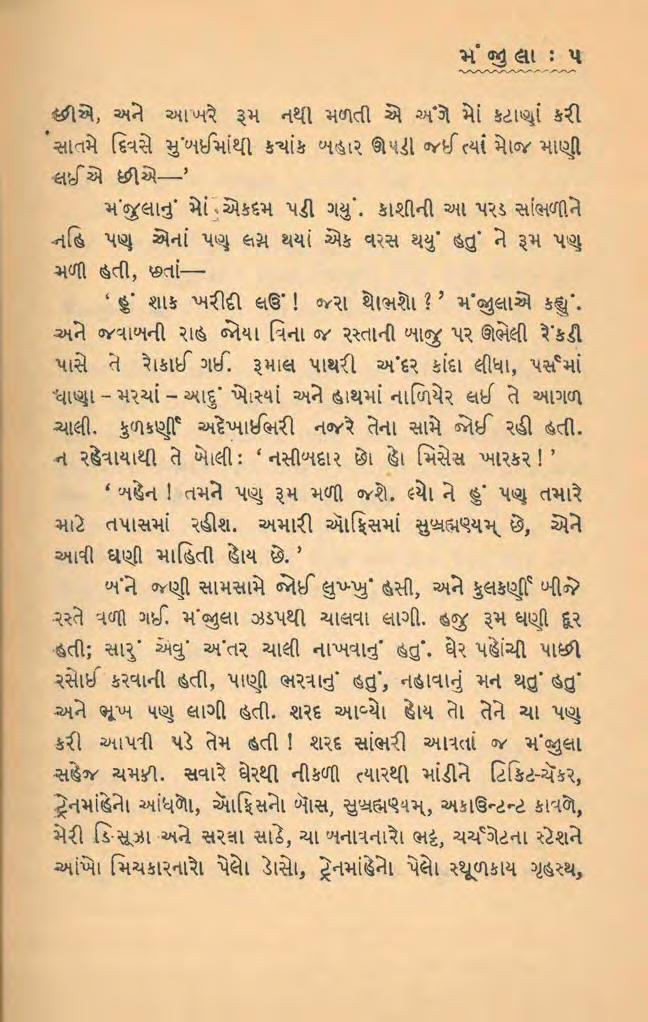 મંજુલા : ૫
છીએ, અને આખરે રૂમ નથી મળતી એ અંગે મોં કટાણાં કરી
સાતમે દિવસે મુંબઈમાંથી કયાંક બહાર ઊપડી જઈ ત્યાં મોજ માણી
લઈએ છીએ—’
મંજુલાનું મોં એકદમ પડી ગયું. કાશીની આ પરડ સાંભળીને
નહિ પણ એનાં પણ લગ્ન થયાં એક વરસ થયું હતું ને રૂમ પણ
મળી હતી, છતાં—
‘ હું શાક ખરીદી લઉં ! જરા થોભશો ? ’ મંજુલાએ કહ્યું.
અને જવાબની રાહ જોયા વિના જ રસ્તાની બાજુ પર ઊભેલી રેંકડી
પાસે તે રોકાઈ ગઈ. રૂમાલ પાથરી અંદર કાંદા લીધા, પર્સમાં
ધાણા – મરચાં – આદું ખોસ્યાં અને હાથમાં નાળિયેર લઈ તે આગળ
ચાલી. કુળકર્ણી અદેખાઈભરી નજરે તેના સામે જોઈ રહી હતી.
ન રહેવાયાથી તે બોલી : ‘ નસીબદાર છો હો મિસેસ ખારકર ! ’
‘ બહેન ! તમને પણ રૂમ મળી જશે. લ્યો ને હું પણ તમારે
માટે તપાસમાં રહીશ. અમારી ઑફિસમાં સુબ્રહ્મણ્યમ્ છે, એને
આવી ઘણી માહિતી હોય છે. ’
બંને જણી સામસામે જોઈ લુખ્ખું હસી, અને કુલકર્ણી બીજે
રસ્તે વળી ગઈ. મંજુલા ઝડપથી ચાલવા લાગી. હજુ રૂમ ઘણી દૂર
હતી; સારું એવું અંતર ચાલી નાખવાનું હતું. ઘેર પહોંચી પાછી
રસોઈ કરવાની હતી, પાણી ભરવાનું હતું, નહાવાનું મન થતું હતું
અને ભૂખ પણ લાગી હતી. શરદ આવ્યો હોય તો તેને ચા પણ
કરી આપવી પડે તેમ હતી ! શરદ સાંભરી આવતાં જ મંજુલા
સહેજ ચમકી. સવારે ઘેરથી નીકળી ત્યારથી માંડીને ટિકિટ-ચૅકર,
ટ્રેનમાંહેનો આંધળો, ઑફિસનો બૉસ, સુબ્રહ્મણ્યમ્, અકાઉન્ટન્ટ કાવળે,
મેરી ડિ’સૂઝા અને સરલા સાઠે, ચા બનાવનારો ભટ્ટ, ચર્ચગેટના સ્ટેશને
આંખો મિચકારનારો પેલો ડોસો, ટ્રેનમાંહેનો પેલો સ્થૂળકાય ગૃહસ્થ,